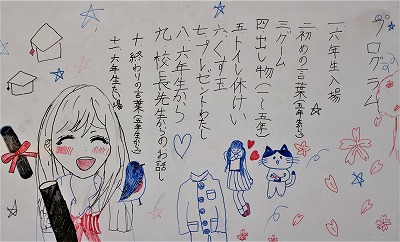 プログラム
一六年生入場
二初めの言葉(五年から)
三ゲーム
四出し物(一~五年)
五トイレ休けい
六くす玉
七プレゼントわたし
八六年生から
九校長先生からのお話し
十終わりの言葉(五年から)
十一六年生たい場